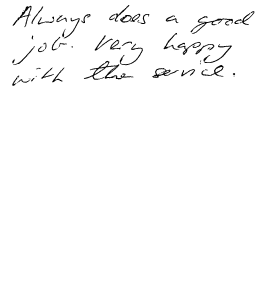 Always does a good
job. Very happy
with the service.